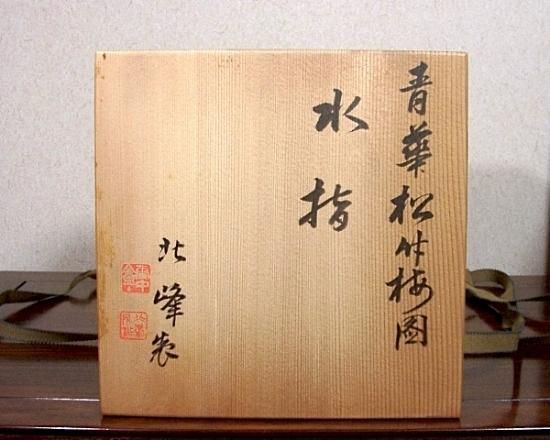 青華松竹梅図
水指
北峰製